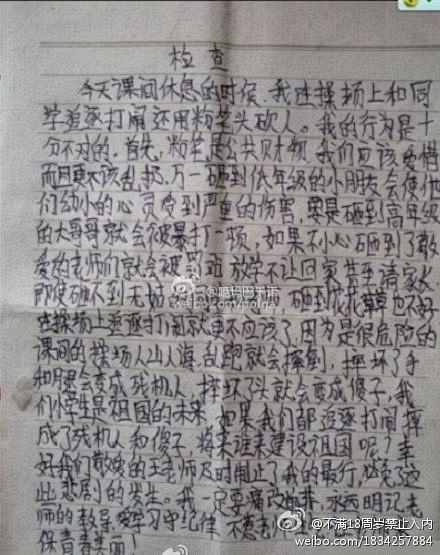 检查
今天课间休息的时候，我在操场上和同
学追逐打闹还用粉笔头砍人。我的行为是十
分不对的。首先，粉笔是公共财物，我们应该爱惜
而且更不该乱扔，万一砸到低年级的小朋友会使他
们幼小的心灵受到严重的伤害，要是砸到高年级
的大哥哥就会被暴打一顿，如果不小心砸到了敬
爱的老师们就会被罚站 放学不让回家 甚至请家长
即使砸不到无辜 砸到花花草草也不好
在操场上追逐打闹就更不应该了，因为是很危险的
课间的操场人山人海，乱跑就会摔倒，摔坏了手
和腿会变成残机人 摔坏了头就会变成傻子，我
们小学生是祖国的未来，如果我们都追逐打闹摔
成了残机人和傻子，将来谁来建设祖国呢？幸
好我们敬爱的王老师及时制止了我的最行，避免了这
些悲剧的发生。我一定要痛改前非 永远明记老
师的教导，爱学习守纪律 不惹老师
保青春美丽！
@哈玛巴千语
weibo.com/polga
@不满18周岁禁止入内
weibo.com/1834257884